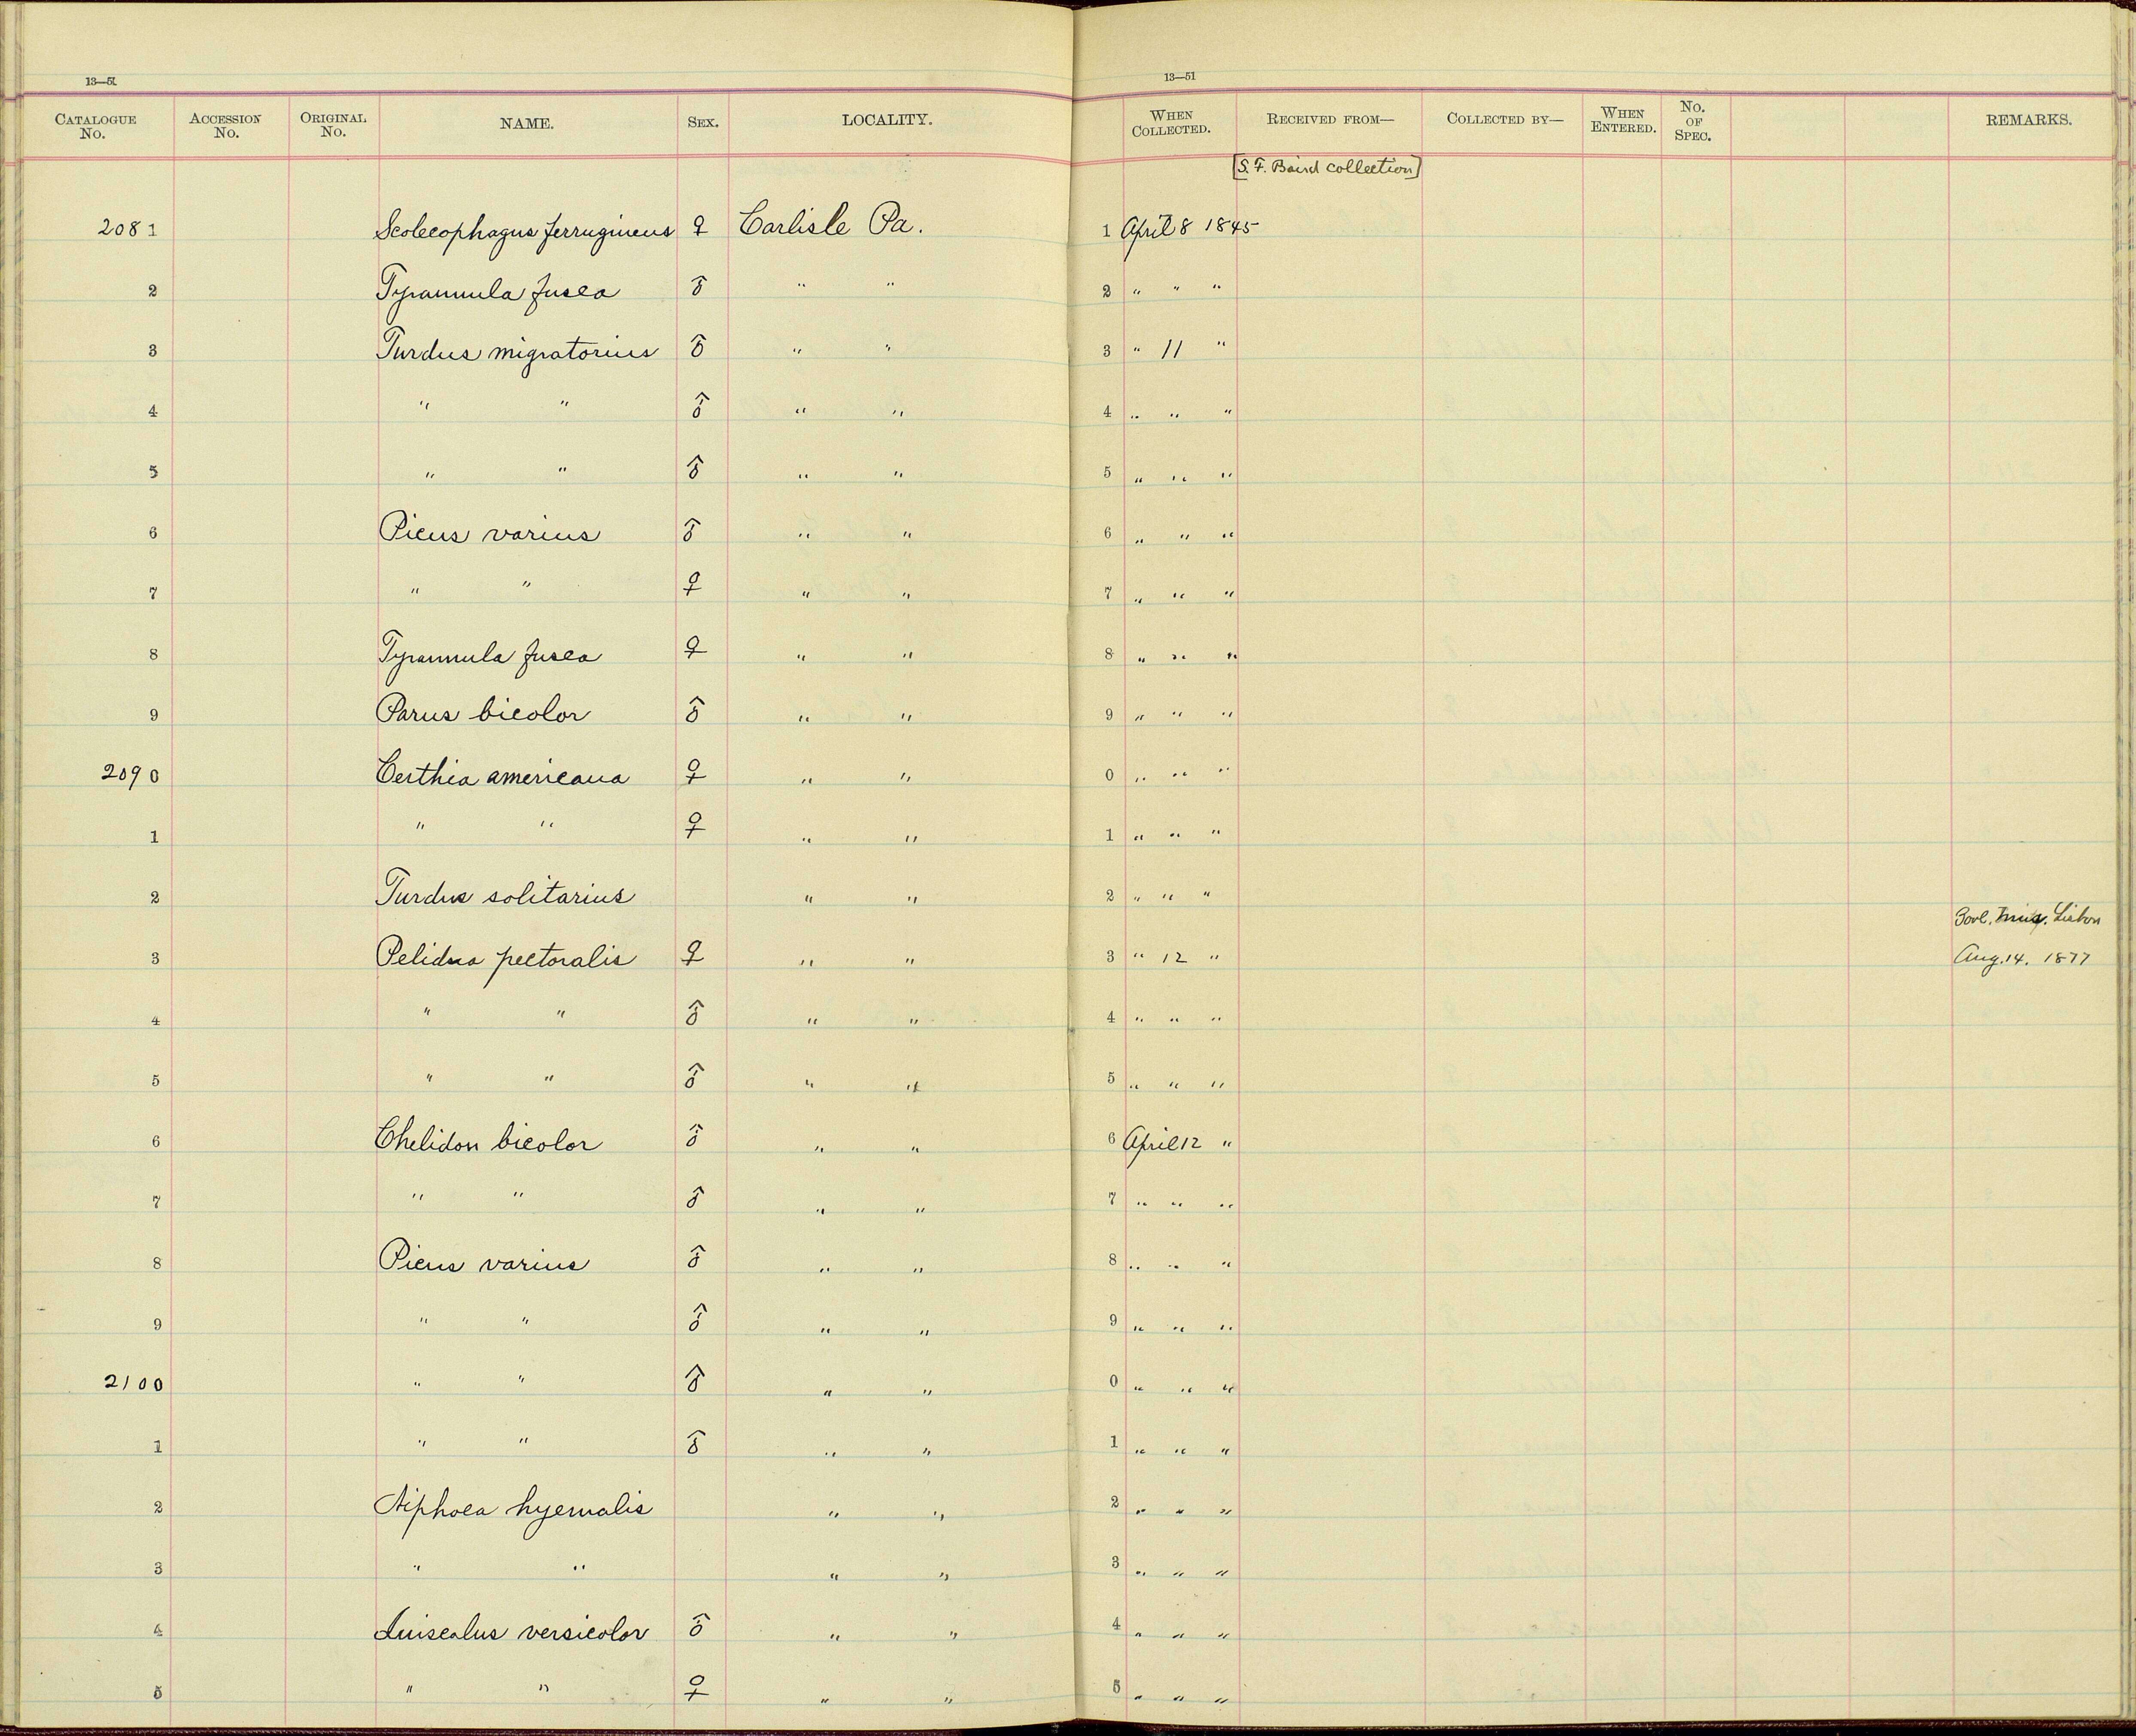 13—51 13—51
CATALOGUE No. ACCESSION No. ORIGINAL No. NAME. SEX. LOCALITY. WHEN COLLECTED. RECEIVED FROM— COLLECTED BY— WHEN ENTERED. No. OF SPEC. REMARKS.
[S. F. Baird collection]
2081 Scolecophagus ferrugineus ♀ Carlisle Pa. 1 April 8 1845
2 Tyrannula fusca ♂ " " 2 " " "
3 Turdus migratorius ♂ " " 3 " 11 "
4 " " ♂ " " 4 " " "
5 " " ♂ " " 5 " " "
6 Picus varius ♂ " " 6 " " "
7 " " ♀ " " 7 " " "
8 Tyrannula fusca ♀ " " 8 " " "
9 Parus bicolor ♂ " " 9 " " "
2090 Certhia americana ♀ " " 0 " " "
1 " " ♀ " " 1 " " "
2 Turdus solitarius " " 2 " " "
Lisbon
3 Pelidna pectoralis ♀ " " 3 " 12 " Aug. 14. 1877
4 " " ♂ " " 4 " " "
5 " " ♂ " " 5 " " "
6 Chelidon bicolor ♂ " " 6 April 12 "
7 " " ♂ " " 7 " " "
8 Picus varius ♂ " " 8 " " "
9 " " ♂ " " 9 " " "
2100 " " ♂ " " 0 " " "
1 " " ♂ " " 1 " " "
2 Niphoea hyemalis " " 2 " " "
3 " " " " 3 " " "
4 Quiscalus versicolor ♂ " " 4 " " "
5 " " ♀ " " 5 " " "